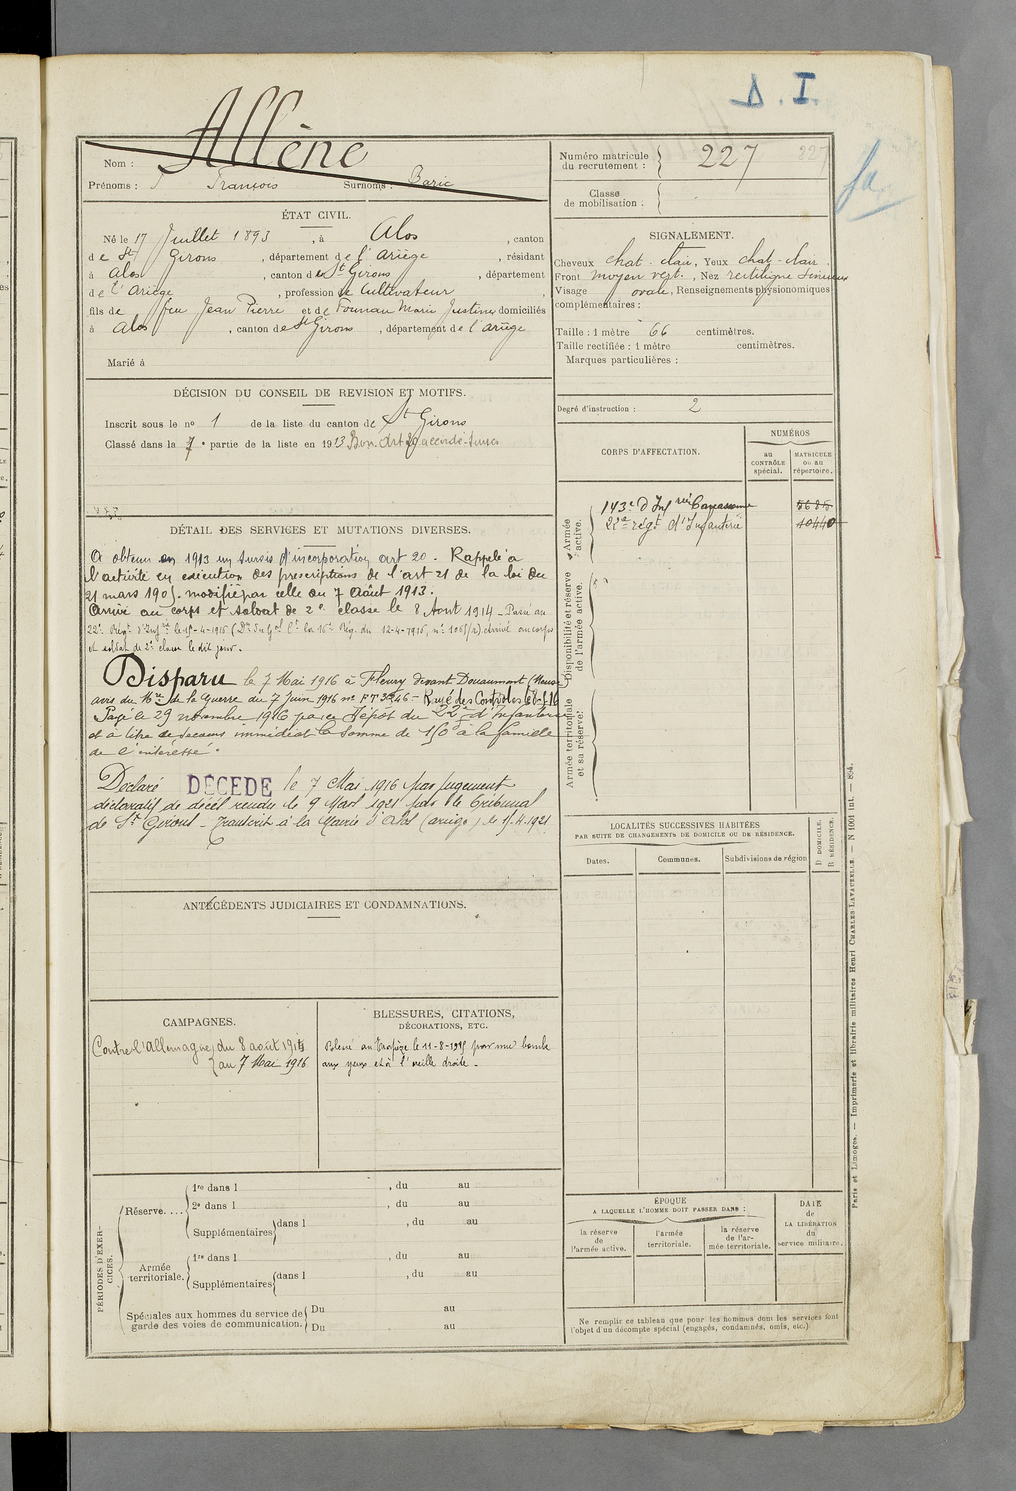 D. I.
Allène
Nom :
Prénoms : François Surnoms : Baric
Numéro matricule du recrutement : 227
Classe de mobilisation :
ÉTAT CIVIL.
Né le 17 Juillet 1893, à Alos, canton
de St Girons, département de l'Ariège, résidant
à Alos, canton de St Girons, département
de l'Ariège, profession de Cultivateur,
fils de feu Jean Pierre et de Fournau Marie Justine domiciliés
à Alos, canton de St Girons, département de l'Ariège
Marié à
SIGNALEMENT.
Cheveux chat. clair, Yeux chat. clair.
Front moyen vert., Nez rectiligne Sinueux
Visage ovale, Renseignements physionomiques
complémentaires :
Taille : 1 mètre 66 centimètres.
Taille rectifiée : 1 mètre centimètres.
Marques particulières :
Degré d'instruction : 2
DÉCISION DU CONSEIL DE REVISION ET MOTIFS.
Inscrit sous le no 1 de la liste du canton de St Girons
Classé dans la 7e partie de la liste en 1913 Bon. Art 20 accordé. Sursis
DÉTAIL DES SERVICES ET MUTATIONS DIVERSES.
A obtenu en 1913 un sursis d'incorporation art 20. Rappelé à
l'activité en exécution des prescriptions de l'art 21 de la loi du
21 mars 1905. modifié par celle du 7 Août 1913.
Arrivé au corps et soldat de 2e classe le 8 Aout 1914 - Passé au
22e Régt d'Infrie le 15-4-1916 (Don du Gal Ct la 16e Rég. du 12-4-1916, no ) arrivé au corps
et soldat de 2e classe le dit jour.
Disparu le 7 Mai 1916 à Fleury devant Douaumont (Meuse)
avis du Mre de la Guerre du 7 Juin 1916 no - Rayé des Contrôles le
Payé le 29 novembre 1916 par le Dépôt du 22e d'Infanterie
et à titre de secours immédiat la somme de 150f à la famille
de l'intéressé.
Déclaré DÉCÉDÉ le 7 Mai 1916 par Jugement
déclaratif de décès rendu le 9 Mars 1921 par le Tribunal
de St Girons - Transcrit à la Mairie d'Alos (ariège) le 15.4.1921
CORPS D'AFFECTATION.
NUMÉROS
au CONTRÔLE spécial.
MATRICULE ou au répertoire.
Armée active.
143e d'Infrie Carcassonne 5625
22e régt d'Infanterie 10440
Disponibilité et réserve de l'armée active.
Armée territoriale et sa réserve.
LOCALITÉS SUCCESSIVES HABITÉES
PAR SUITE DE CHANGEMENTS DE DOMICILE OU DE RÉSIDENCE.
Dates. Communes. Subdivisions de région
D DOMICILE. R RÉSIDENCE.
ANTÉCÉDENTS JUDICIAIRES ET CONDAMNATIONS.
CAMPAGNES.
Contre l'Allemagne du 8 août 1914
au 7 Mai 1916
BLESSURES, CITATIONS,
DÉCORATIONS, ETC.
Blessé au trapèze le 11-8-1915 par une bombe
aux yeux et à l'oreille droite.
PÉRIODES D'EXERCICES.
Réserve....
1re dans l , du au
2e dans l , du au
Supplémentaires dans l , du au
Armée territoriale.
1re dans l , du au
Supplémentaires dans l , du au
Spéciales aux hommes du service de garde des voies de communication.
Du au
Du au
ÉPOQUE
A LAQUELLE L'HOMME DOIT PASSER DANS :
la réserve de l'armée active.
l'armée territoriale.
la réserve de l'armée territoriale.
DATE de LA LIBÉRATION du service militaire.
Ne remplir ce tableau que pour les hommes dont les services font
l'objet d'un décompte spécial (engagés, condamnés, omis, etc.)
Paris et Limoges. — Imprimerie et librairie militaires Henri CHARLES-LAVAUZELLE. — N 1001 int. — 804.